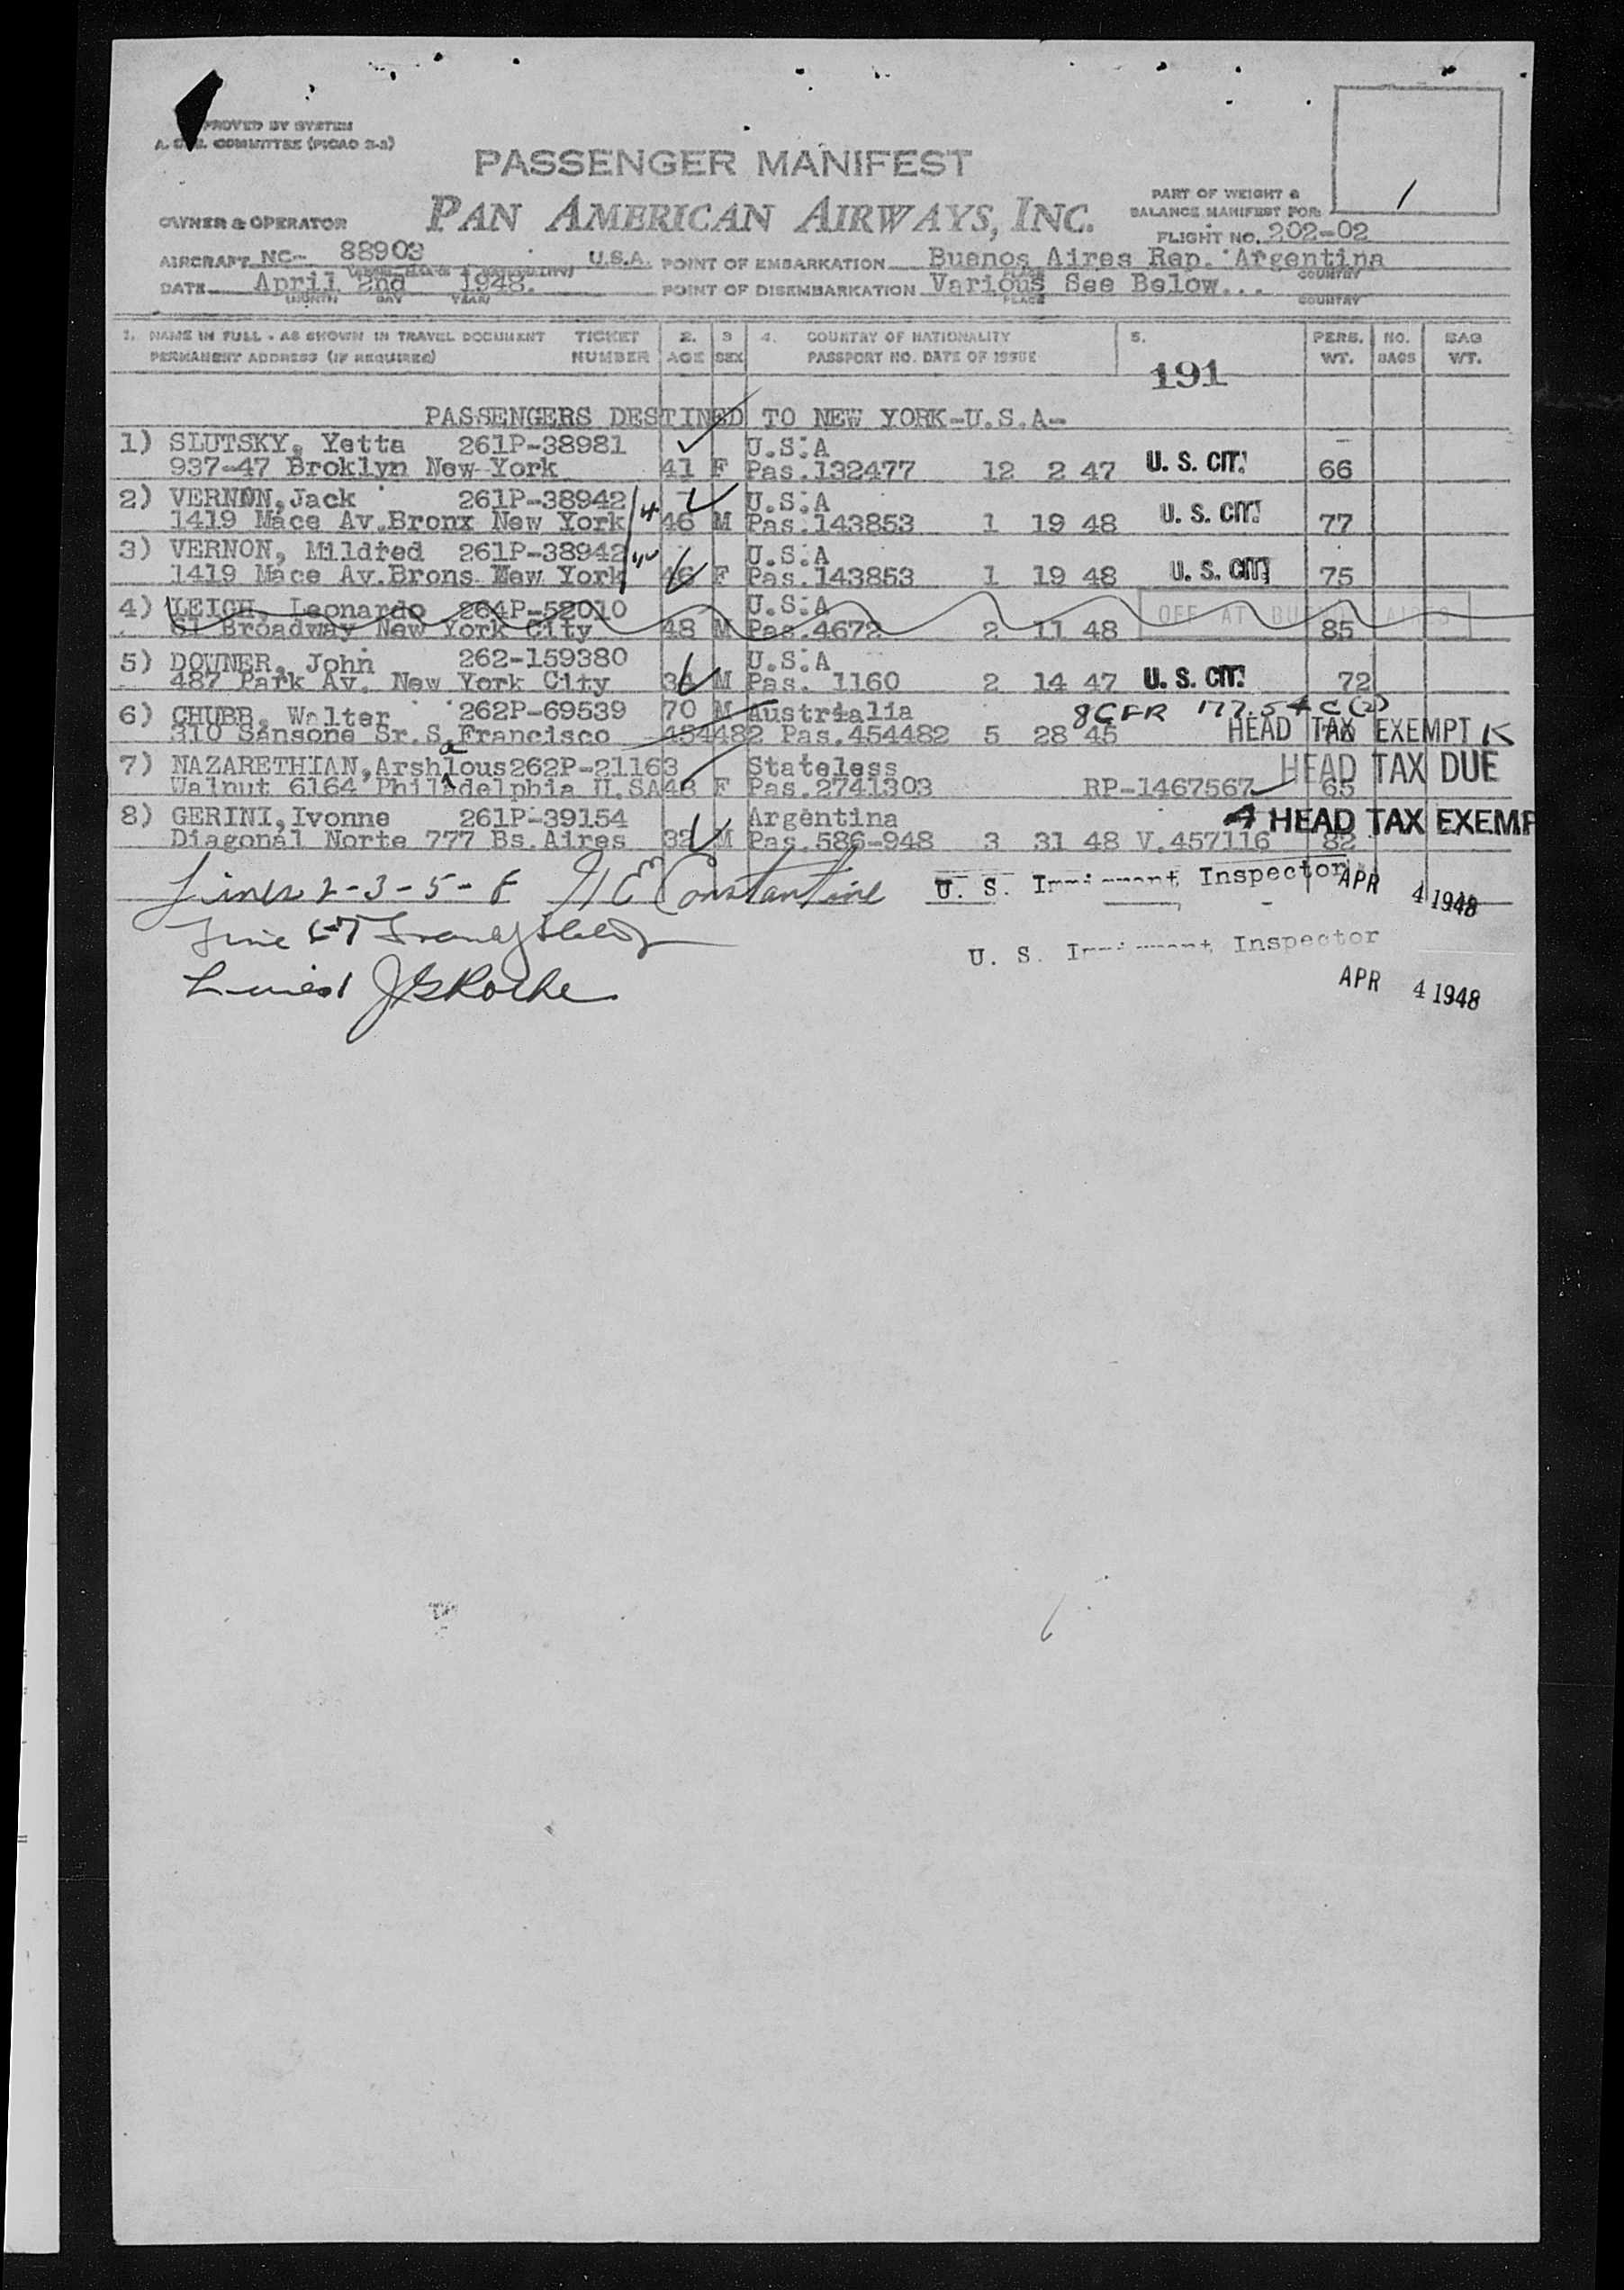 PROVED BY SYSTEM
COMMITTEE (PICAO 2-2)
PASSENGER MANIFEST
PAN AMERICAN AIRWAYS, INC.
OWNER & OPERATOR
PART OF WEIGHT &
BALANCE MANIFEST FOR:
FLIGHT NO. 202-02
1
AIRCRAFT NC- 88903 U.S.A. POINT OF EMBARKATION Buenos Aires Rep. Argentina
PLACE COUNTRY
DATE April 2nd 1948. POINT OF DISEMBARKATION Various See Below...
(MONTH DAY YEAR) PLACE COUNTRY
1. NAME IN FULL - AS SHOWN IN TRAVEL DOCUMENT TICKET 2. 3 4. COUNTRY OF NATIONALITY 5. PERS. NO. BAG
PERMANENT ADDRESS (IF REQUIRED) NUMBER AGE SEX PASSPORT NO. DATE OF ISSUE WT. BAGS WT.
191
PASSENGERS DESTINED TO NEW YORK-U.S.A-
1) SLUTSKY, Yetta 261P-38981 U.S.A
937-47 Broklyn New-York 41 F Pas.132477 12 2 47 U. S. CIT. 66
2) VERNON,Jack 261P-38942 U.S.A
1419 Mace Av.Bronx New York 46 M Pas.143853 1 19 48 U. S. CIT. 77
3) VERNON, Mildred 261P-38942 U.S.A
1419 Mace Av.Brons New York 46 F Pas.143853 1 19 48 U. S. CIT. 75
4) LEIGH, Leonardo 264P-52010 U.S.A
61 Broadway New York City 48 M Pas.4672 2 11 48 OFF AT BUENOS AIRES 85
5) DOWNER, John 262-159380 U.S.A
487 Park Av. New York City 34 M Pas. 1160 2 14 47 U. S. CIT. 72
6) CHUBB, Walter 262P-69539 70 M Australia 8CFR 177.54 C(2)
310 Sansone Sr.S.Francisco 454482 Pas.454482 5 28 45 HEAD TAX EXEMPT K
7) NAZARETHIAN,Arshalous262P-21163 Stateless HEAD TAX DUE
Walnut 6164 Philadelphia U.SA48 F Pas.2741303 RP-1467567 65
8) GERINI,Ivonne 261P-39154 Argentina HEAD TAX EXEMP
Diagonal Norte 777 Bs.Aires 32 M Pas.586-948 3 31 48 V.457116 82
Lines 2-3-5-8 H E Constantine U. S. Immigrant Inspector APR 4 1948
Line 6-7
U. S. Immigrant Inspector
JGRoche APR 4 1948